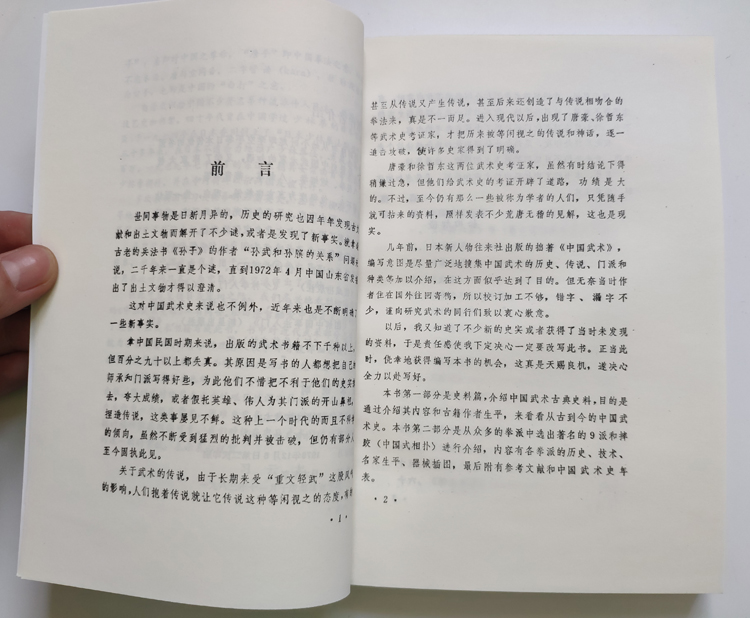 前言
世间事物是日新月异的，历史的研究也因年年发现古文
献和出土文物而解开了不少谜，或者是发现了新事实。就拿
古老的兵法书《孙子》的作者“孙武和孙膑的关系”问题来
说，二千年来一直是个谜，直到1972年4月中国山东省发
出了出土文物才得以澄清。
这对中国武术史来说也不例外，近年来也是不断明
一些新事实。
拿中国民国时期来说，出版的武术书籍不下千种以上，
但百分之九十以上都失真。其原因是写书的人都想把自己
师承和门派写得好些，为此他们不惜把不利于他们的史实
去，夸大成绩，或者假托英雄、伟人为其门派的开山鼻祖，
捏造传说，这类事屡见不鲜。这种上一个时代的而且不科
的倾向，虽然不断受到猛烈的批判并被击破，但仍有部分人
至今固执此见。
关于武术的传说，由于长期来受“重文轻武”这股风
的影响，人们抱着传说就让它传说这种等闲视之的态度，
·1·
甚至从传说又产生传说，甚至后来还创造了与传说相吻合的
拳法来，真是不一而足。进入现代以后，出现了唐豪、徐哲东
等武术史考证家，才把历来被等闲视之的传说和神话，逐一
迫击攻破，使许多史案得到了明确。
唐豪和徐哲东这两位武术史考证家，虽然有时结论下得
稍嫌过急，但他们给武术史的考证开辟了道路，功绩是大
的。不过，至今仍有那么一些被称为学者的人们，只凭随手
就可拈来的资料，照样发表不少荒唐无稽的见解，这也是现
实。
几年前，日本新人物往来社出版的拙著《中国武术》，
编写意图是尽量广泛地搜集中国武术的历史、传说、门派和
种类等加以介绍，在这方面似乎达到了目的。但无奈当时作
者住在国外往回寄稿，所以校订加工不够，错字、漏字不
少，谨向研究武术的同行们致以衷心歉意。
以后，我又知道了不少新的史实或者获得了当时未发现
的资料，于是责任感使我下定决心一定要改写此书。正当此
时，侥幸地获得编写本书的机会，这真是天赐良机，遂决心
全力以赴写好。
本书第一部分是史料篇，介绍中国武术古典史料，目的是
通过介绍其内容和古籍作者生平，来看看从古到今的中国武
术史。本书第二部分是从众多的拳派中选出著名的9派和摔
跤（中国式相扑）进行介绍，内容有各拳派的历史、技术、
名家生平、器械插图，最后附有参考文献和中国武术史年
表。
·2·